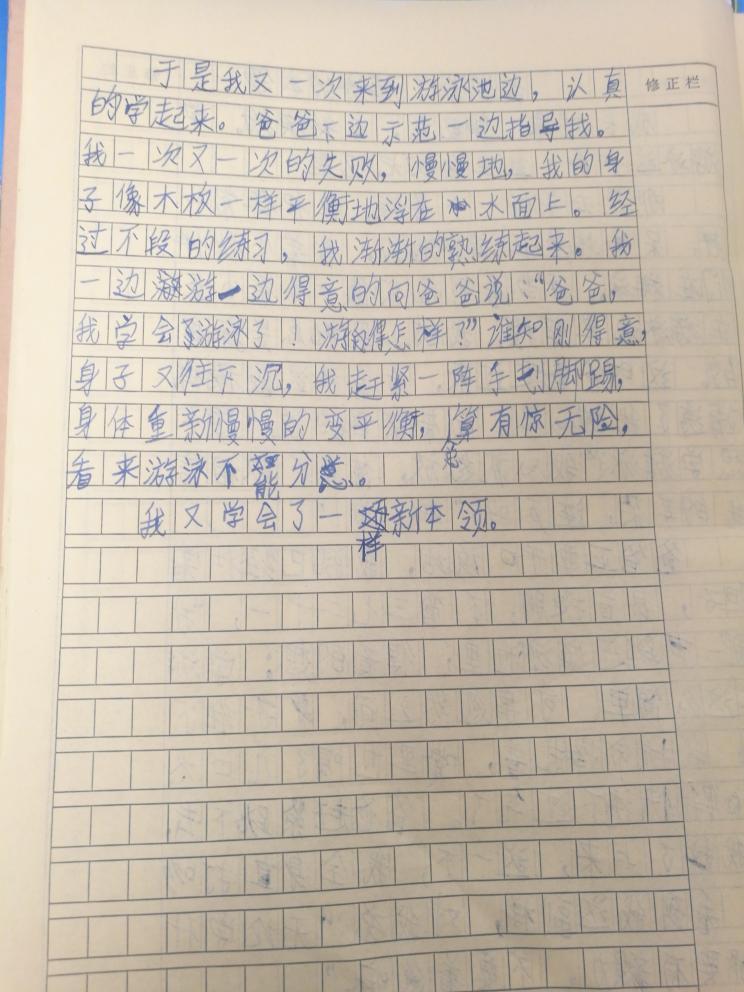 于是我又一次来到游泳池边，认真
修正栏
的学起来。爸爸一边示范一边指导我。
我一次又一次的失败，慢慢地，我的身
子像木板一样平衡地浮在水面上。经
过不段的练习，我渐渐的熟练起来。我
一边游一边得意的向爸爸说："爸爸，
我学会了游泳了！游得怎样？"谁知刚得意，
身子又往下沉，我赶紧一阵手划脚踢，
身体重新慢慢的变平衡，算有惊无险，
总
看来游泳不能分
我又学会了一样新本领。